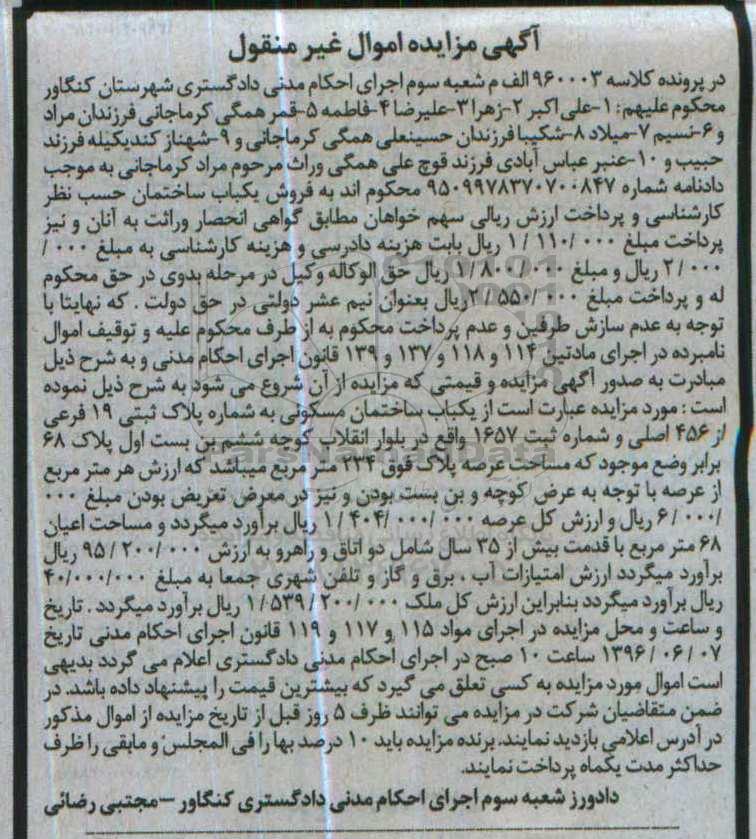 آگهی مزایده اموال غیر منقول
در پرونده کلاسه ۹۶۰۰۰۳ الف م شعبه سوم اجرای احکام مدنی دادگستری شهرستان کنگاور
محکوم علیهم: ۱-علی اکبر ۲-زهرا ۳-علیرضا ۴-فاطمه ۵-قمر همگی کرماجانی فرزندان مراد
و ۶-نسیم ۷-میلاد ۸-شکیبا فرزندان حسینعلی همگی کرماجانی و ۹-شهناز کندیکیله فرزند
حبیب و ۱۰-عنبر عباس آبادی فرزند قوچ علی همگی وراث مرحوم مراد کرماجانی به موجب
دادنامه شماره ۹۵۰۹۹۷۸۳۷۰۷۰۰۸۴۷ محکوم اند به فروش یکباب ساختمان حسب نظر
کارشناسی و پرداخت ارزش ریالی سهم خواهان مطابق گواهی انحصار وراثت به آنان و نیز
پرداخت مبلغ ۱/۱۱۰/۰۰۰ ریال بابت هزینه دادرسی و هزینه کارشناسی به مبلغ ۰۰۰/
۲/۰۰۰ ریال و مبلغ ۱/۸۰۰/۰۰۰ ریال حق الوکاله وکیل در مرحله بدوی در حق محکوم
له و پرداخت مبلغ ۲/۵۵۰/۰۰۰ ریال بعنوان نیم عشر دولتی در حق دولت . که نهایتا با
توجه به عدم سازش طرفین و عدم پرداخت محکوم به از طرف محکوم علیه و توقیف اموال
نامبرده در اجرای مادتین ۱۱۴ و ۱۱۸ و ۱۳۷ و ۱۳۹ قانون اجرای احکام مدنی و به شرح ذیل
مبادرت به صدور آگهی مزایده و قیمتی که مزایده از آن شروع می شود به شرح ذیل نموده
است : مورد مزایده عبارت است از یکباب ساختمان مسکونی به شماره پلاک ثبتی ۱۹ فرعی
از ۴۵۶ اصلی و شماره ثبت ۱۶۵۷ واقع در بلوار انقلاب کوچه ششم بن بست اول پلاک ۶۸
برابر وضع موجود که مساحت عرصه پلاک فوق ۲۳۴ متر مربع میباشد که ارزش هر متر مربع
از عرصه با توجه به عرض کوچه و بن بست بودن و نیز در معرض تعریض بودن مبلغ ۰۰۰
/۶/۰۰۰ ریال و ارزش کل عرصه ۱/۴۰۴/۰۰۰/۰۰۰ ریال برآورد میگردد و مساحت اعیان
۶۸ متر مربع با قدمت بیش از ۳۵ سال شامل دو اتاق و راهرو به ارزش ۹۵/۲۰۰/۰۰۰ ریال
برآورد میگردد ارزش امتیازات آب ، برق و گاز و تلفن شهری جمعا به مبلغ ۴۰/۰۰۰/۰۰۰
ریال برآورد میگردد بنابراین ارزش کل ملک ۱/۵۳۹/۲۰۰/۰۰۰ ریال برآورد میگردد . تاریخ
و ساعت و محل مزایده در اجرای مواد ۱۱۵ و ۱۱۷ و ۱۱۹ قانون اجرای احکام مدنی تاریخ
۱۳۹۶/۰۶/۰۷ ساعت ۱۰ صبح در اجرای احکام مدنی دادگستری اعلام می گردد بدیهی
است اموال مورد مزایده به کسی تعلق می گیرد که بیشترین قیمت را پیشنهاد داده باشد. در
ضمن متقاضیان شرکت در مزایده می توانند ظرف ۵ روز قبل از تاریخ مزایده از اموال مذکور
در آدرس اعلامی بازدید نمایند. برنده مزایده باید ۱۰ درصد بها را فی المجلس و مابقی را ظرف
حداکثر مدت یکماه پرداخت نمایند.
دادورز شعبه سوم اجرای احکام مدنی دادگستری کنگاور –مجتبی رضائی
ParsNamadData